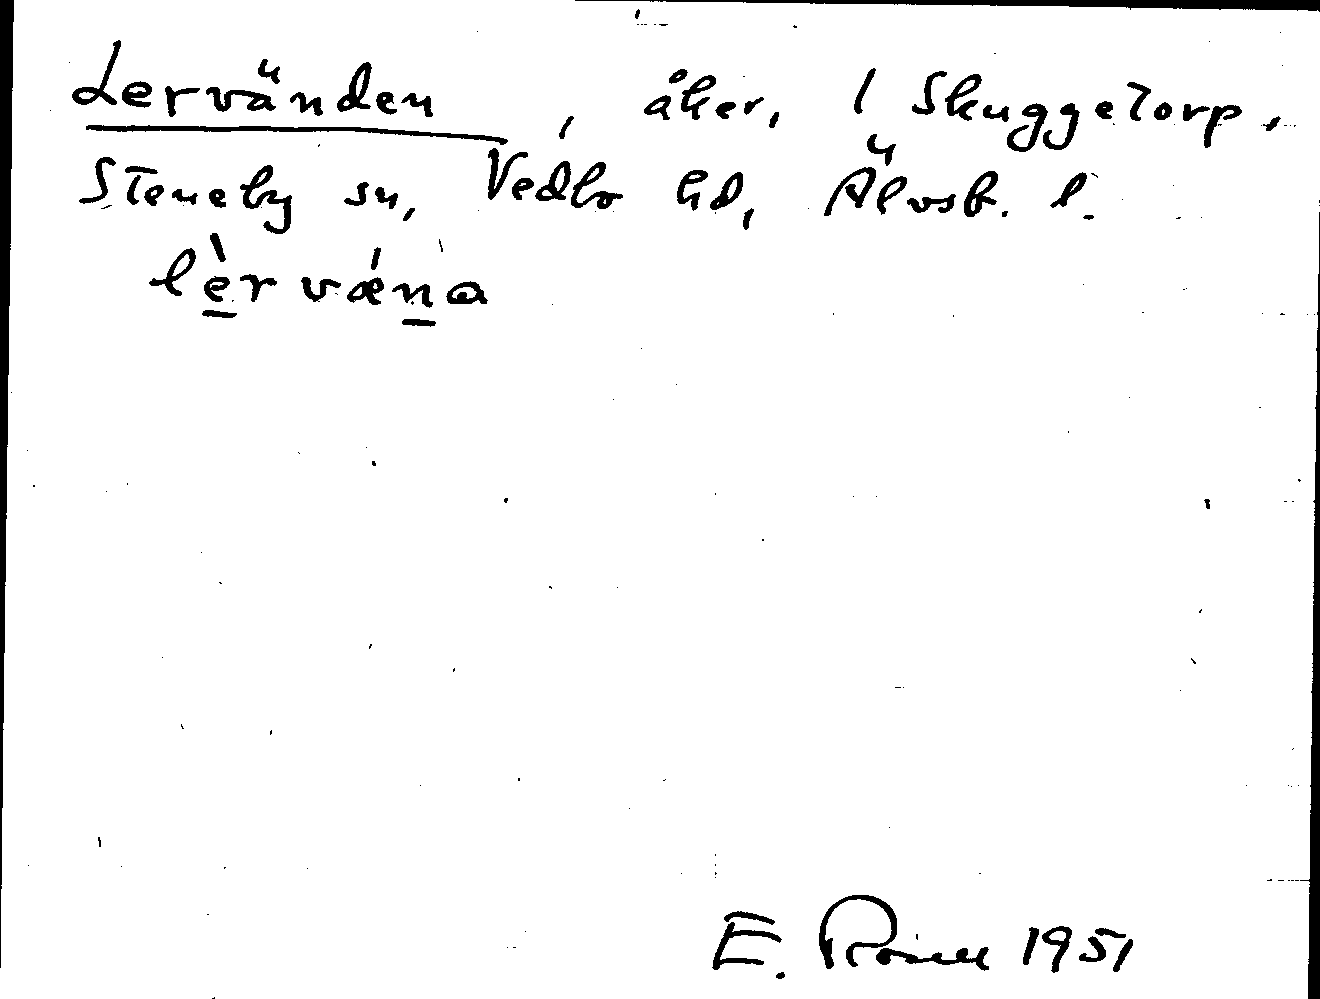 Lervänden, åker, 1 Skuggetorp.
Steneby sn, Vedbo hd, Älvsb. l.
lèrvǽna
E. Rosell 1951